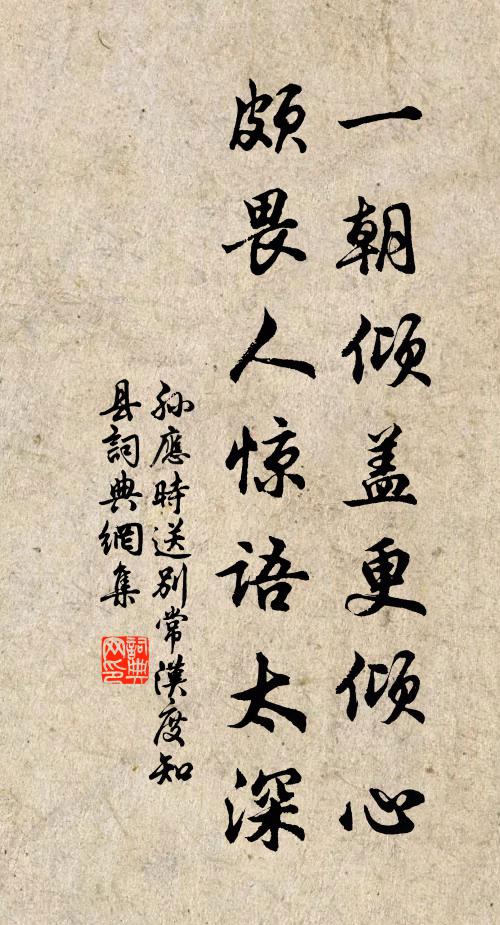 一朝倾盖更倾心
颇畏人惊语太深
孙應時送别常漢度知
县詞典網集
詞典网印